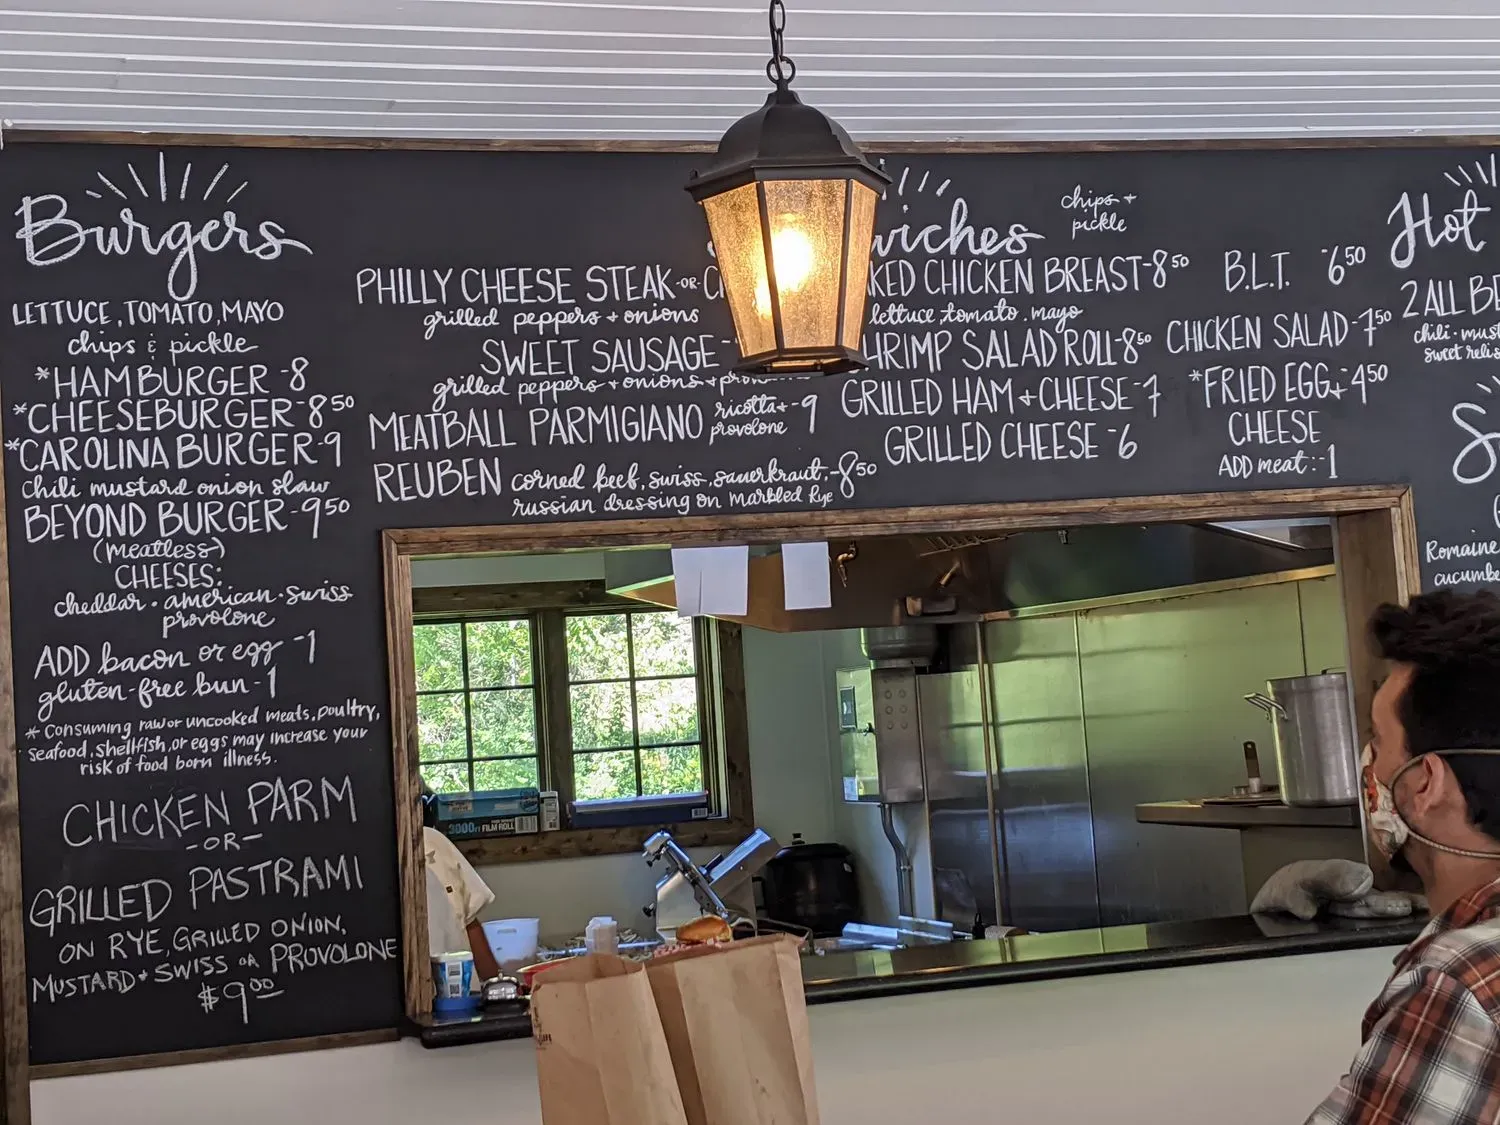 Burgers
LETTUCE, TOMATO, MAYO
chips & pickle
*HAMBURGER -8
*CHEESEBURGER -8 50
*CAROLINA BURGER -9
Chili mustard onion slaw
BEYOND BURGER -9 50
(meatless)
CHEESES:
cheddar · american · swiss
provolone
ADD bacon or egg -1
gluten-free bun -1
* Consuming raw or uncooked meats, poultry,
seafood, shellfish, or eggs may increase your
risk of food born illness.
CHICKEN PARM
-OR-
GRILLED PASTRAMI
ON RYE, GRILLED ONION,
MUSTARD + SWISS OR PROVOLONE
$9 00
chips +
pickle
PHILLY CHEESE STEAK -OR-
grilled peppers + onions
SWEET SAUSAGE -
grilled peppers + onions +
MEATBALL PARMIGIANO ricotta + -9
provolone
REUBEN corned beef, swiss, sauerkraut, -8 50
russian dressing on Marbled Rye
CHICKEN BREAST -8 50
lettuce, tomato, mayo
SALAD ROLL -8 50
GRILLED HAM + CHEESE -7
GRILLED CHEESE -6
B.L.T. -6 50
CHICKEN SALAD -7 50
*FRIED EGG + -4 50
CHEESE
ADD meat: -1
Hot
2 ALL
chili
sweet
Romaine
3000ft FILM ROLL